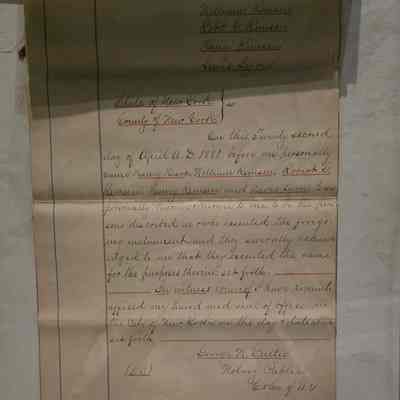 William Remsen
Robt G. Remsen
Jane Remsen
State of New York
County of New York } ss
On this Twenty second
day of April A.D. 1881 before me personally
came William Remsen, Robert G.
Remsen, Remsen and to me
personally known to me to be the per
sons described in who executed the forego
ing instrument and they severally acknow
ledged to me that they executed the same
for the purposes therein set forth.
In witness whereof I have hereunto
affixed my hand and seal of office in
the City of New York on the day & date afore
set forth
Notary Public
N.Y.